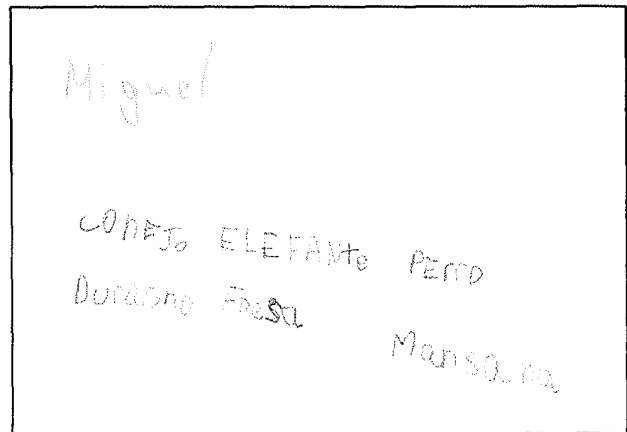 Miguel
CONEJO ELEFANte PErrO
Durasno Fresa Mansana